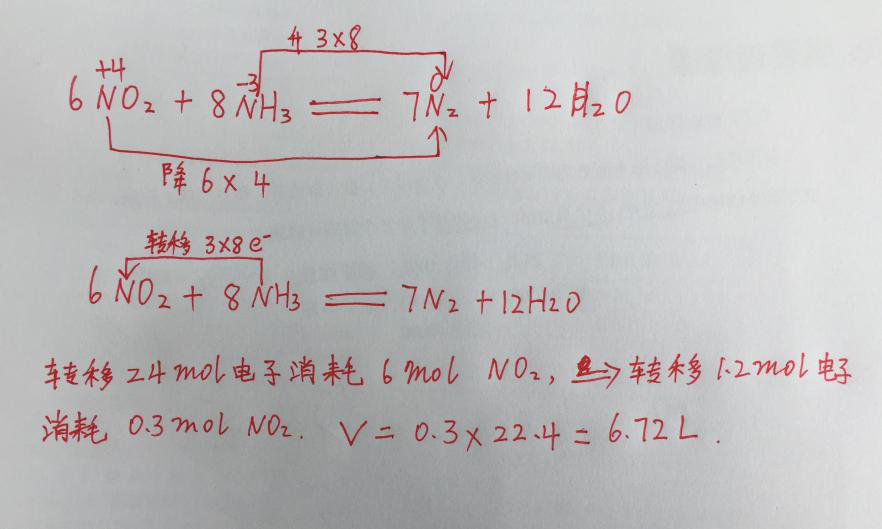 升 3×8
+4 -3 0
6NO₂ + 8NH₃ ══ 7N₂ + 12H₂O
降 6×4
转移 3×8e⁻
6NO₂ + 8NH₃ ══ 7N₂ + 12H₂O
转移 24mol电子消耗 6mol NO₂, ⇒转移1.2mol电子
消耗 0.3mol NO₂. V = 0.3×22.4 = 6.72L.